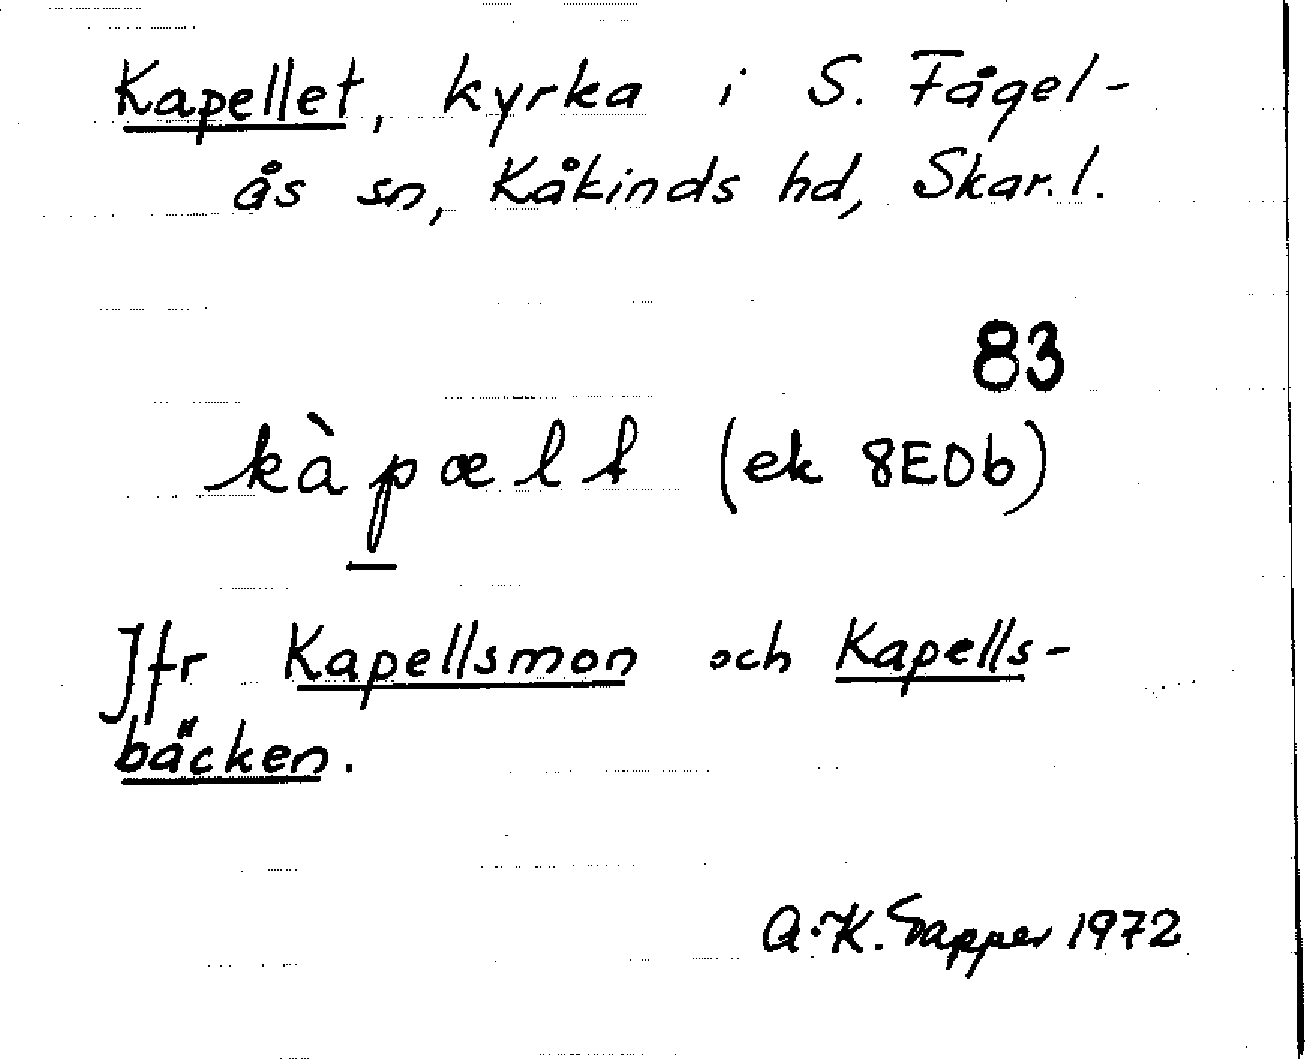 Kapellet, kyrka i S. Fågel-
ås sn, Kåkinds hd, Skar. l.
83
kàpælt (ek 8E0b)
Jfr Kapellsmon och Kapells-
bäcken.
A.-K. Sapper 1972